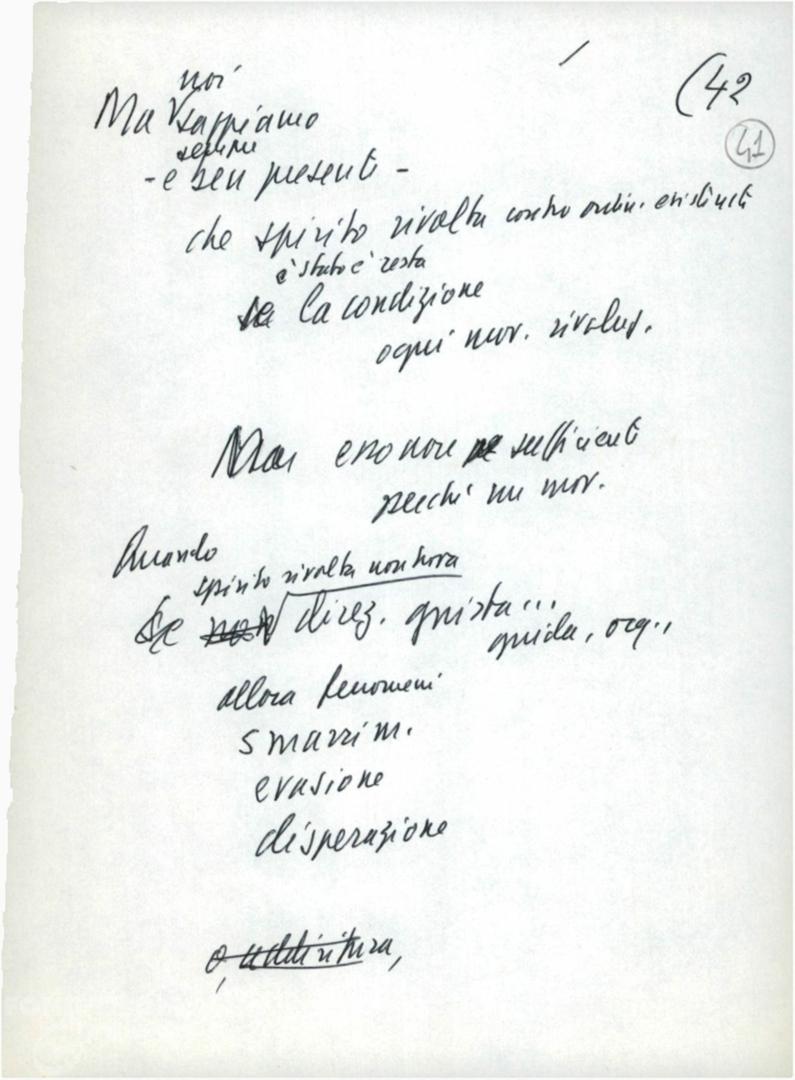 (42
41
noi
Ma sappiamo
sempre
- e ben presenti -
che spirito rivolta contro ordin. esistenti
è stato e resta
la condizione
ogni mov. rivoluz.
Ma esso non sufficienti
perché un mov.
Quando
spirito rivolta non trova
Se non direz. giusta...
guida, org..,
allora fenomeni
smarrim.
evasione
disperazione
o, addirittura,